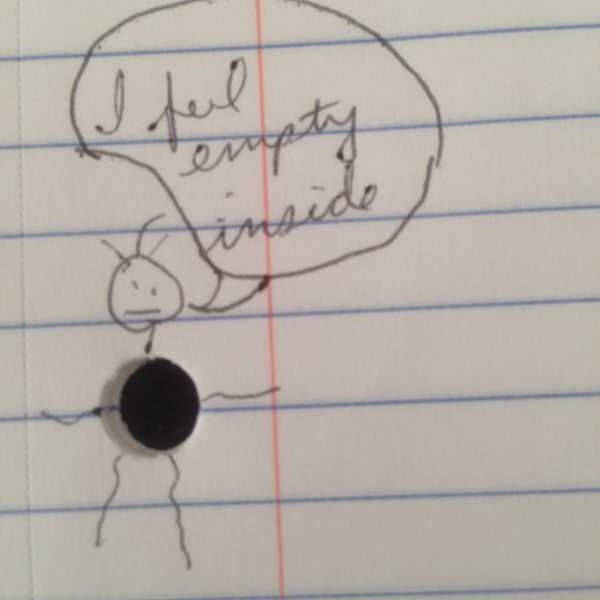 I feel
empty
inside